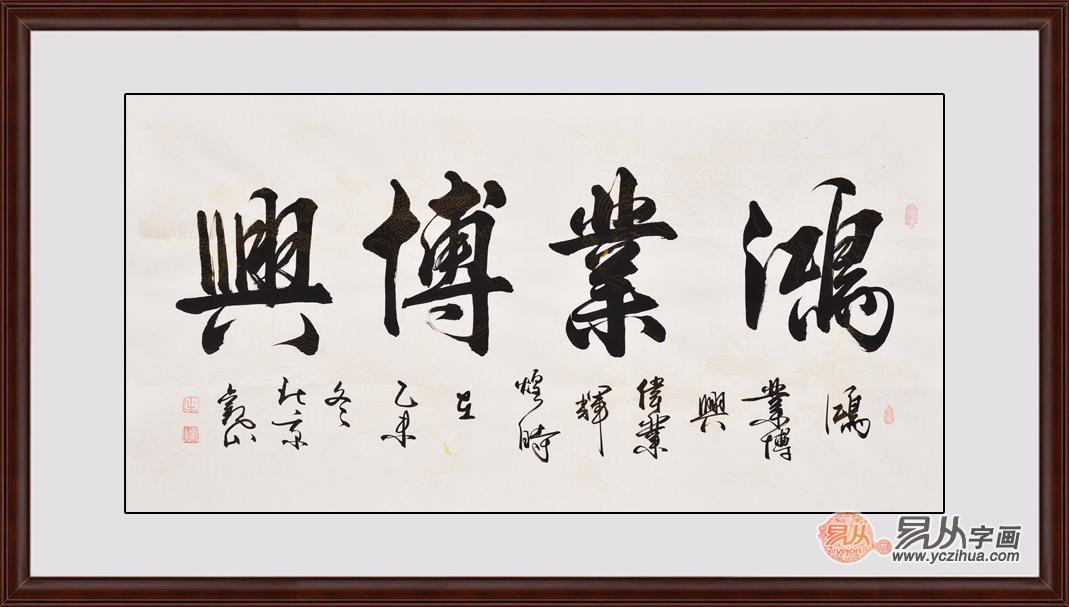 鴻業博興
鴻
業博
興
偉業
輝
煌時
在
乙未
冬
北京
觀山
易从
yejon
易从字画
www.yczihua.com